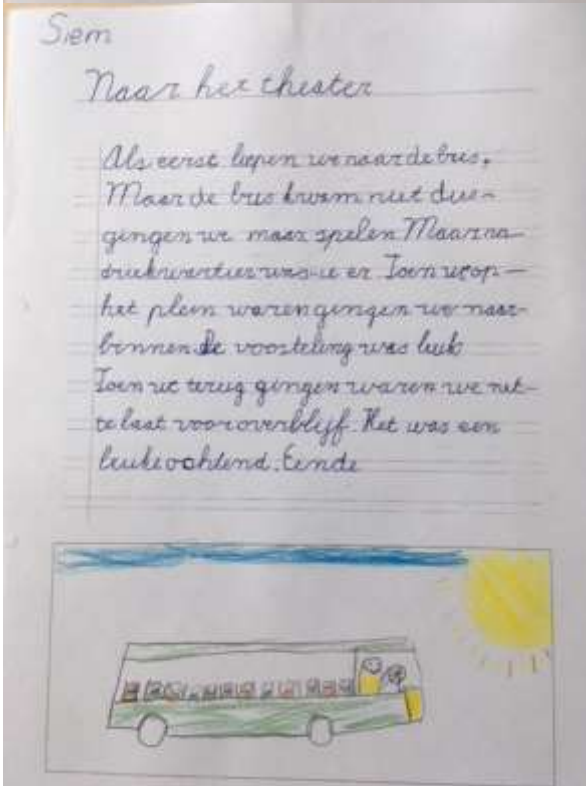 Siem
Naar het theater
Als eerst liepen we naar de bus.
Maar de bus kwam niet dus
gingen we maar spelen Maar na
driekwartier was-ie er Toen we op
het plein waren gingen we naar
binnen de voorsteling was leuk
Toen we terug gingen waren we net
te laat voor overblijf. Het was een
leuke ochtend. Einde